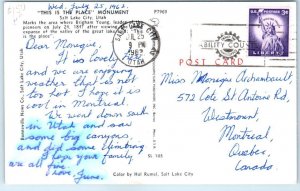 Wed, July 25, 1962
"THIS IS THE PLACE" MONUMENT
P7763
Salt Lake City, Utah
Marks the area where Brigham Young, leader
pioneers on July 24, 1847 after viewing
the great valley of
Dear Monique,
It is lovely
and we are enjoying
weather tho' not
too hot. I hope it is
cool in Montreal.
We went down south
in Utah and saw
some big canyons,
and did some climbing
I hope your family
are all fine.
Love, June.
Bonneville News Co., Salt Lake City, Utah
SL 105
Color by Hal Rumel, Salt Lake City
SALT LAKE CITY
JUL 25
9 PM
1962
UTAH
LIBERTY
3¢
POST CARD
Miss Monique Archambault,
572 Cote St Antoine Rd,
Westmount,
Montreal,
Quebec,
Canada.